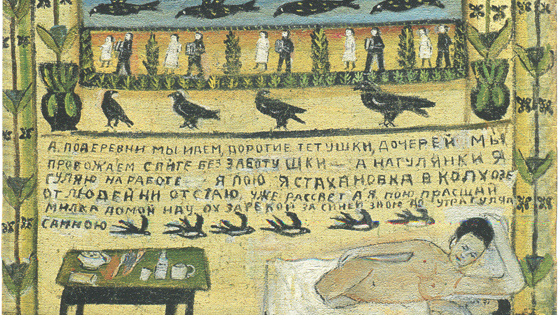 А, ПОДЕРЕВНИ МЫ ИДЕМ, ДОРОГИЕ ТЕТУШКИ, ДОЧЕРЕЙ МЫ
ПРОВОЖАЕМ СПИТЕ БЕЗ ЗАБОТУШКИ — А НАГУЛЯНКИ Я
ГУЛЯЮ НА РАБОТЕ — Я ПОЮ Я СТАХАНОВКА В КОЛХОЗЕ
ОТ ЛЮДЕЙ НИ ОТСТАЮ, УЖЕ РАССВЕТ А Я ПОЮ ПРАСЩАЙ
МИЛКА ДОМОЙ ИДУ, ОХ ЗАРЕКОЙ ЗА СИНЕЙ ЗНОЮ ДО УТРА ГУЛЯЛ
САМНОЮ